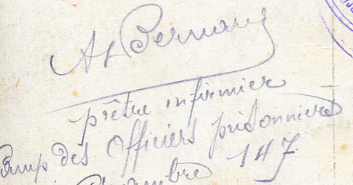 A Bernard
prêtre infirmier
Camp des Officiers prisonniers
Chambre 147.